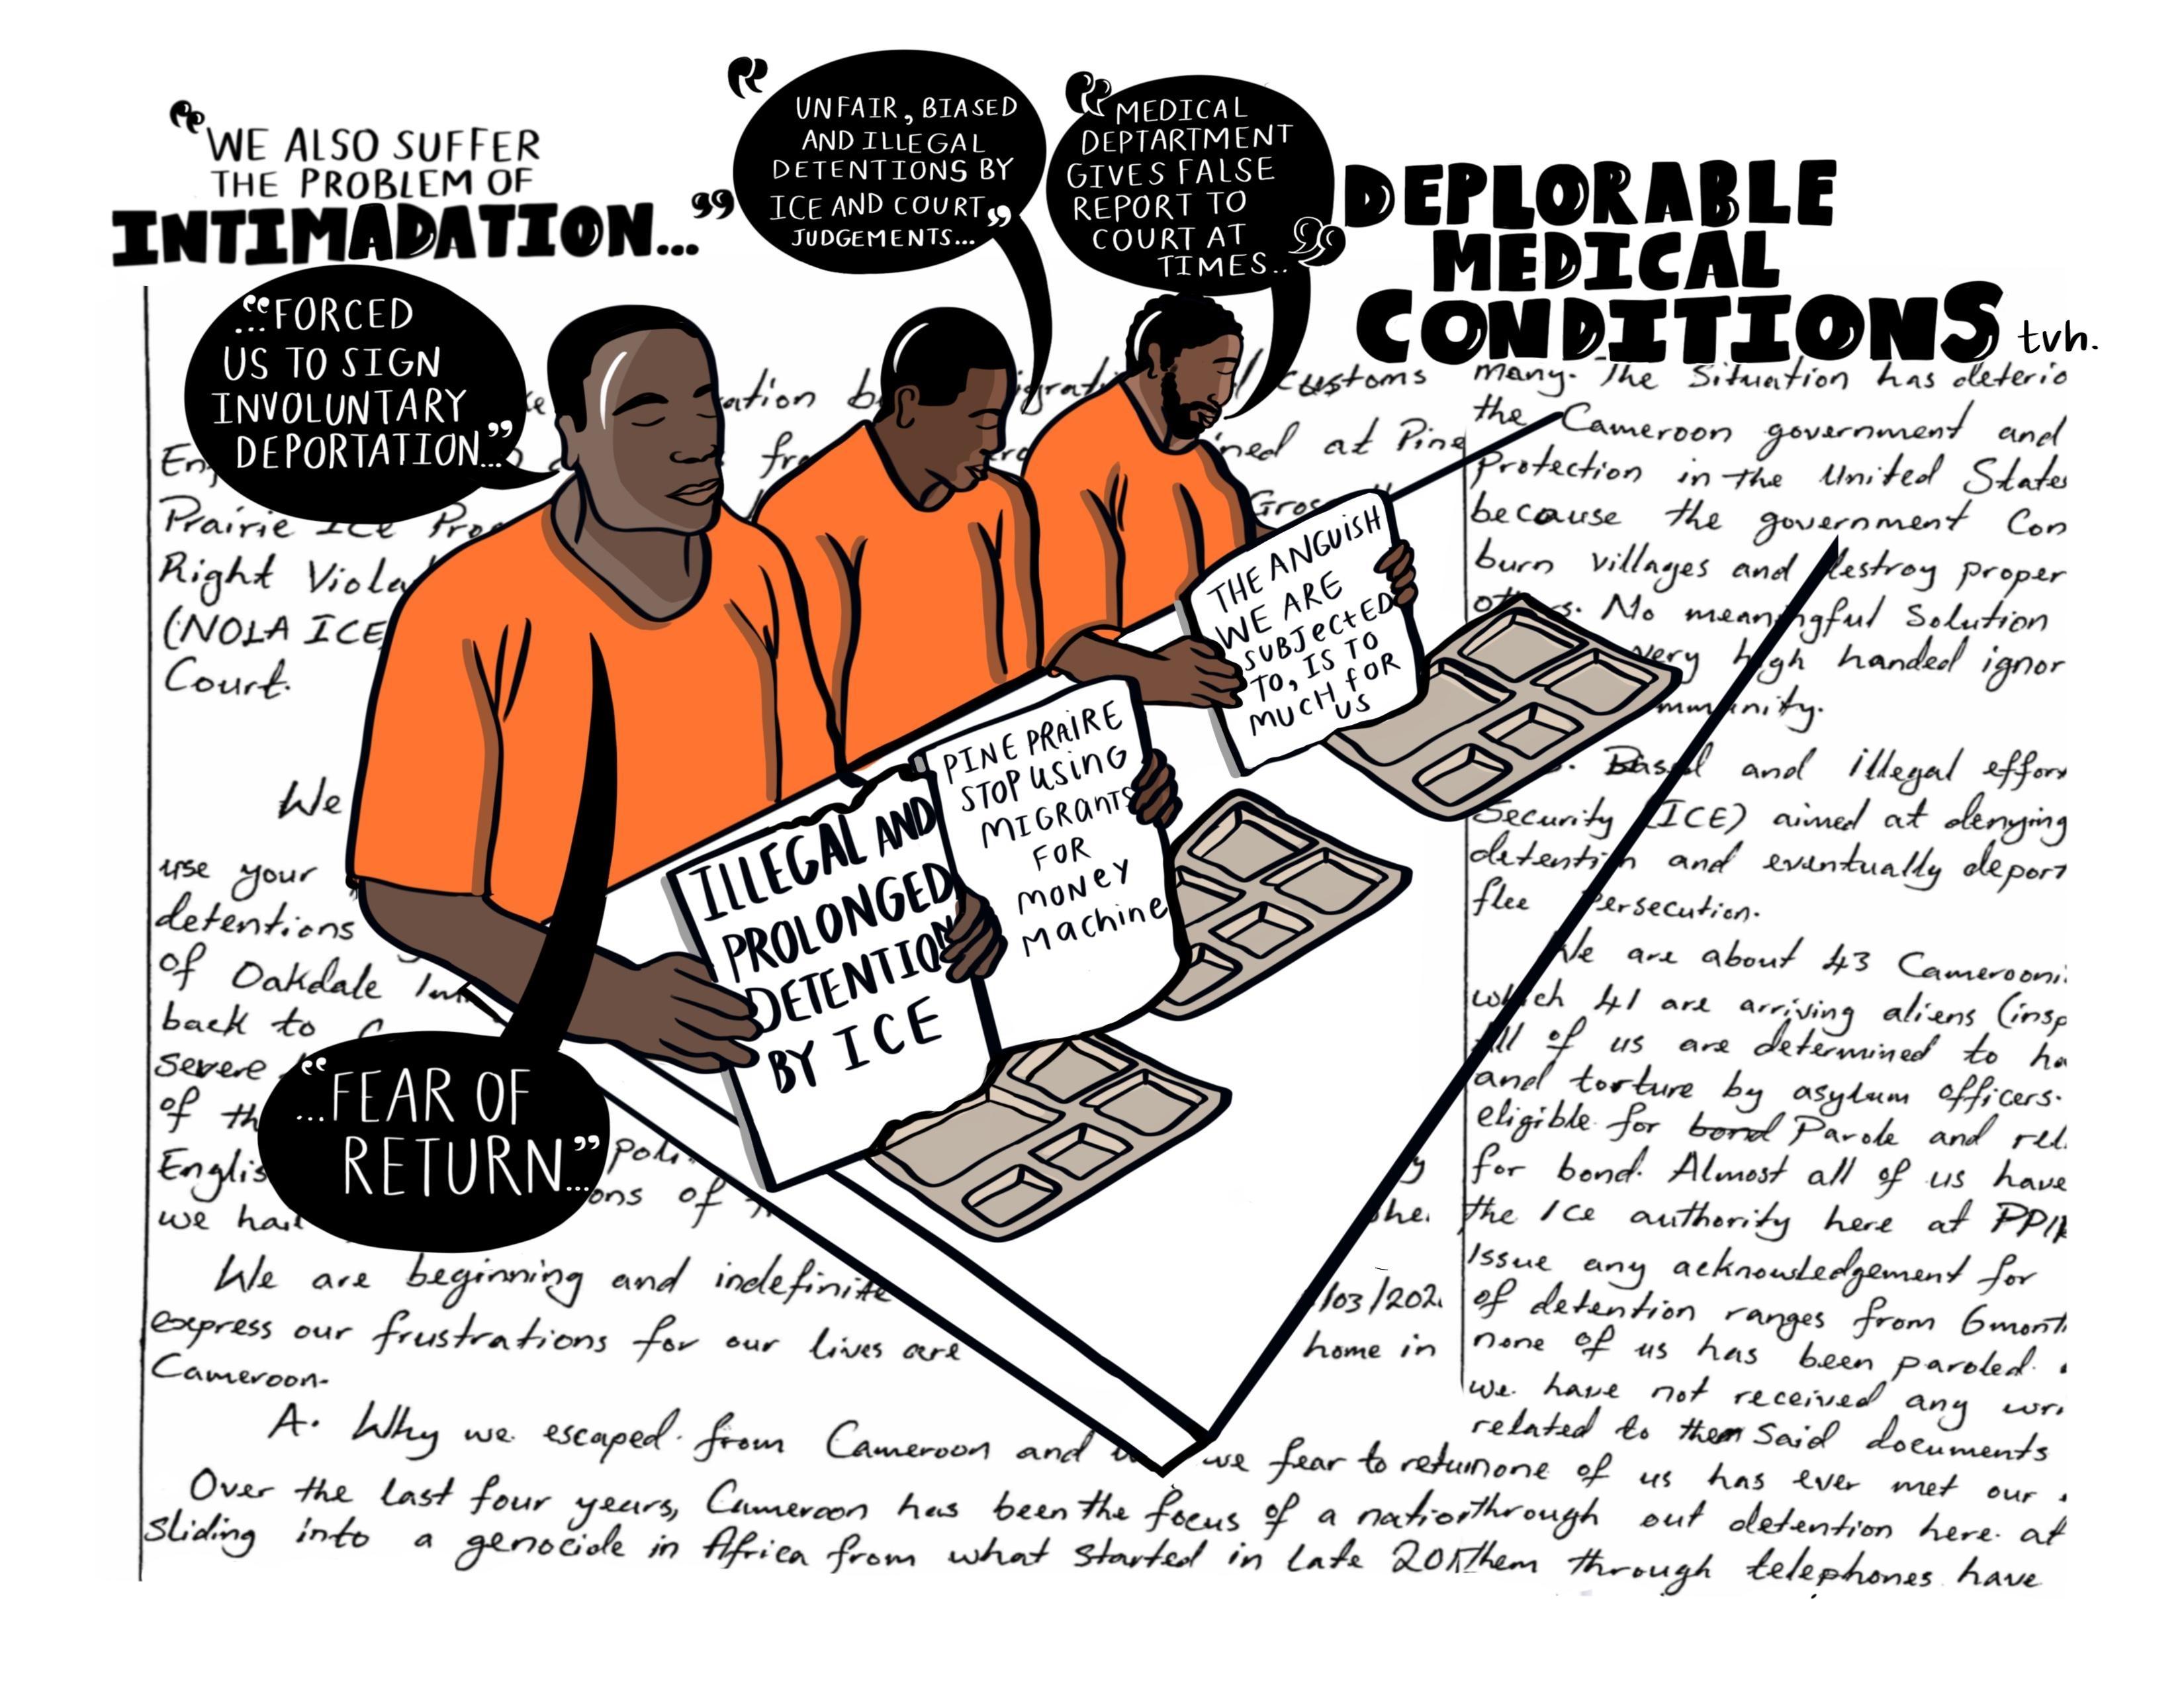 “WE ALSO SUFFER
THE PROBLEM OF
INTIMADATION...”
“UNFAIR, BIASED
AND ILLEGAL
DETENTIONS BY
ICE AND COURT
JUDGEMENTS...”
“MEDICAL
DEPTARTMENT
GIVES FALSE
REPORT TO
COURT AT
TIMES..”
DEPLORABLE
MEDICAL
CONDITIONS
tvh.
“...FORCED
US TO SIGN
INVOLUNTARY
DEPORTATION...”
THE ANGUISH
WE ARE
SUBJECTED
TO, IS TO
MUCH FOR
US
PINE PRAIRE
STOP USING
MIGRANTS
FOR
MONEY
MACHINE
ILLEGAL AND
PROLONGED
DETENTION
BY ICE
“...FEAR OF
RETURN...”
customs
at Pine
Prairie ICE
Right
(NOLA ICE
Court.
We
use your
detentions
of Oakdale
back to
severe
of
we
We are beginning and indefinite
express our frustrations for our lives are
Cameroon-
A. Why we escaped from Cameroon and
we fear to
Over the last four years, Cameroon has been the focus of a
sliding into a genocide in Africa from what started in late
home in
many. The Situation has deterio
the Cameroon government and
Protection in the United States
because the government Con
burn villages and destroy proper
No meaningful Solution
very high handed ignor
and illegal effort
Security (ICE) aimed at denying
detention and eventually deport
flee Persecution.
We are about 43 Camerooni
which 41 are arriving aliens (insp
All of us are determined to ha
and torture by asylum officers.
eligible for bond Parole and rel
for bond. Almost all of us have
the ICE authority here at
Issue any acknowledgement for
of detention ranges from 6 month
none of us has been paroled.
we have not received any wri
related to them said documents
none of us has ever met our
through out detention here at
them through telephones have